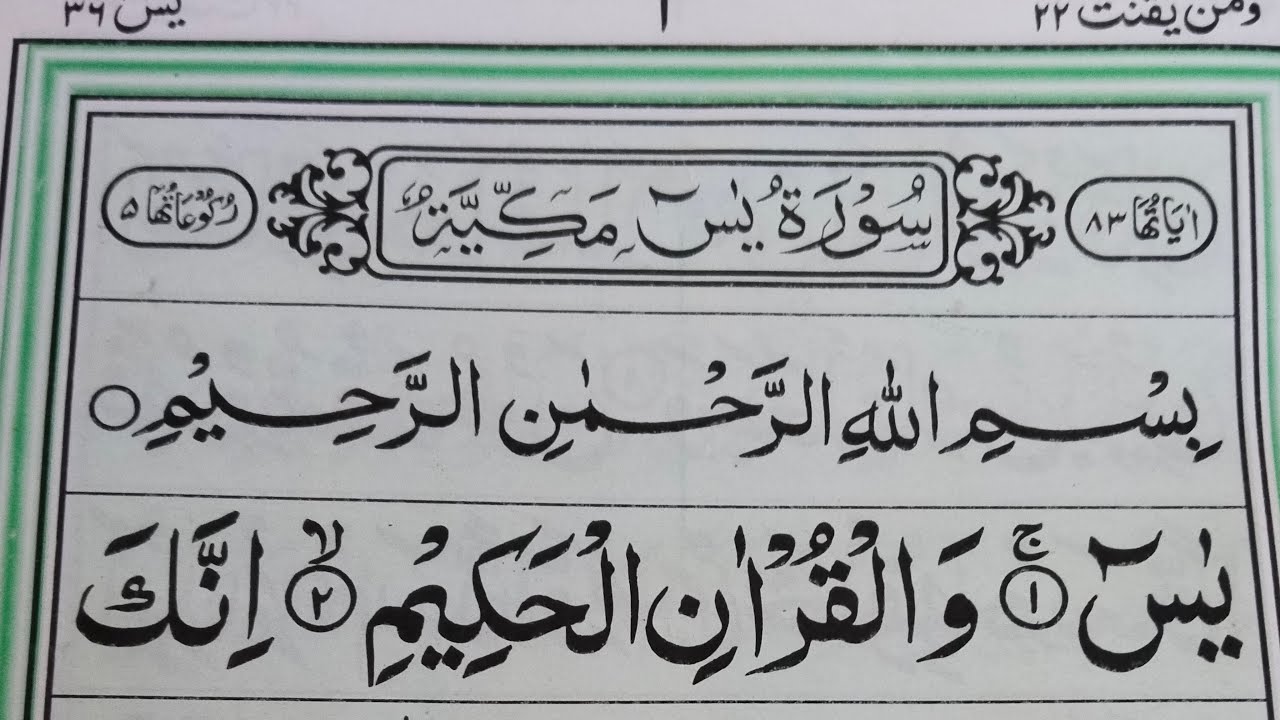 ومن يقنت ٢٢ ١ يس ٣٦
اٰيَاتُهَا ٨٣ سُوْرَةُ يٰسٓ مَكِّيَّةٌ رُكُوْعَاتُهَا ٥
بِسْمِ اللّٰهِ الرَّحْمٰنِ الرَّحِيْمِ ○
يٰسٓ ۚ ﴿١﴾ وَالْقُرْاٰنِ الْحَكِيْمِ ۙ ﴿٢﴾ اِنَّكَ